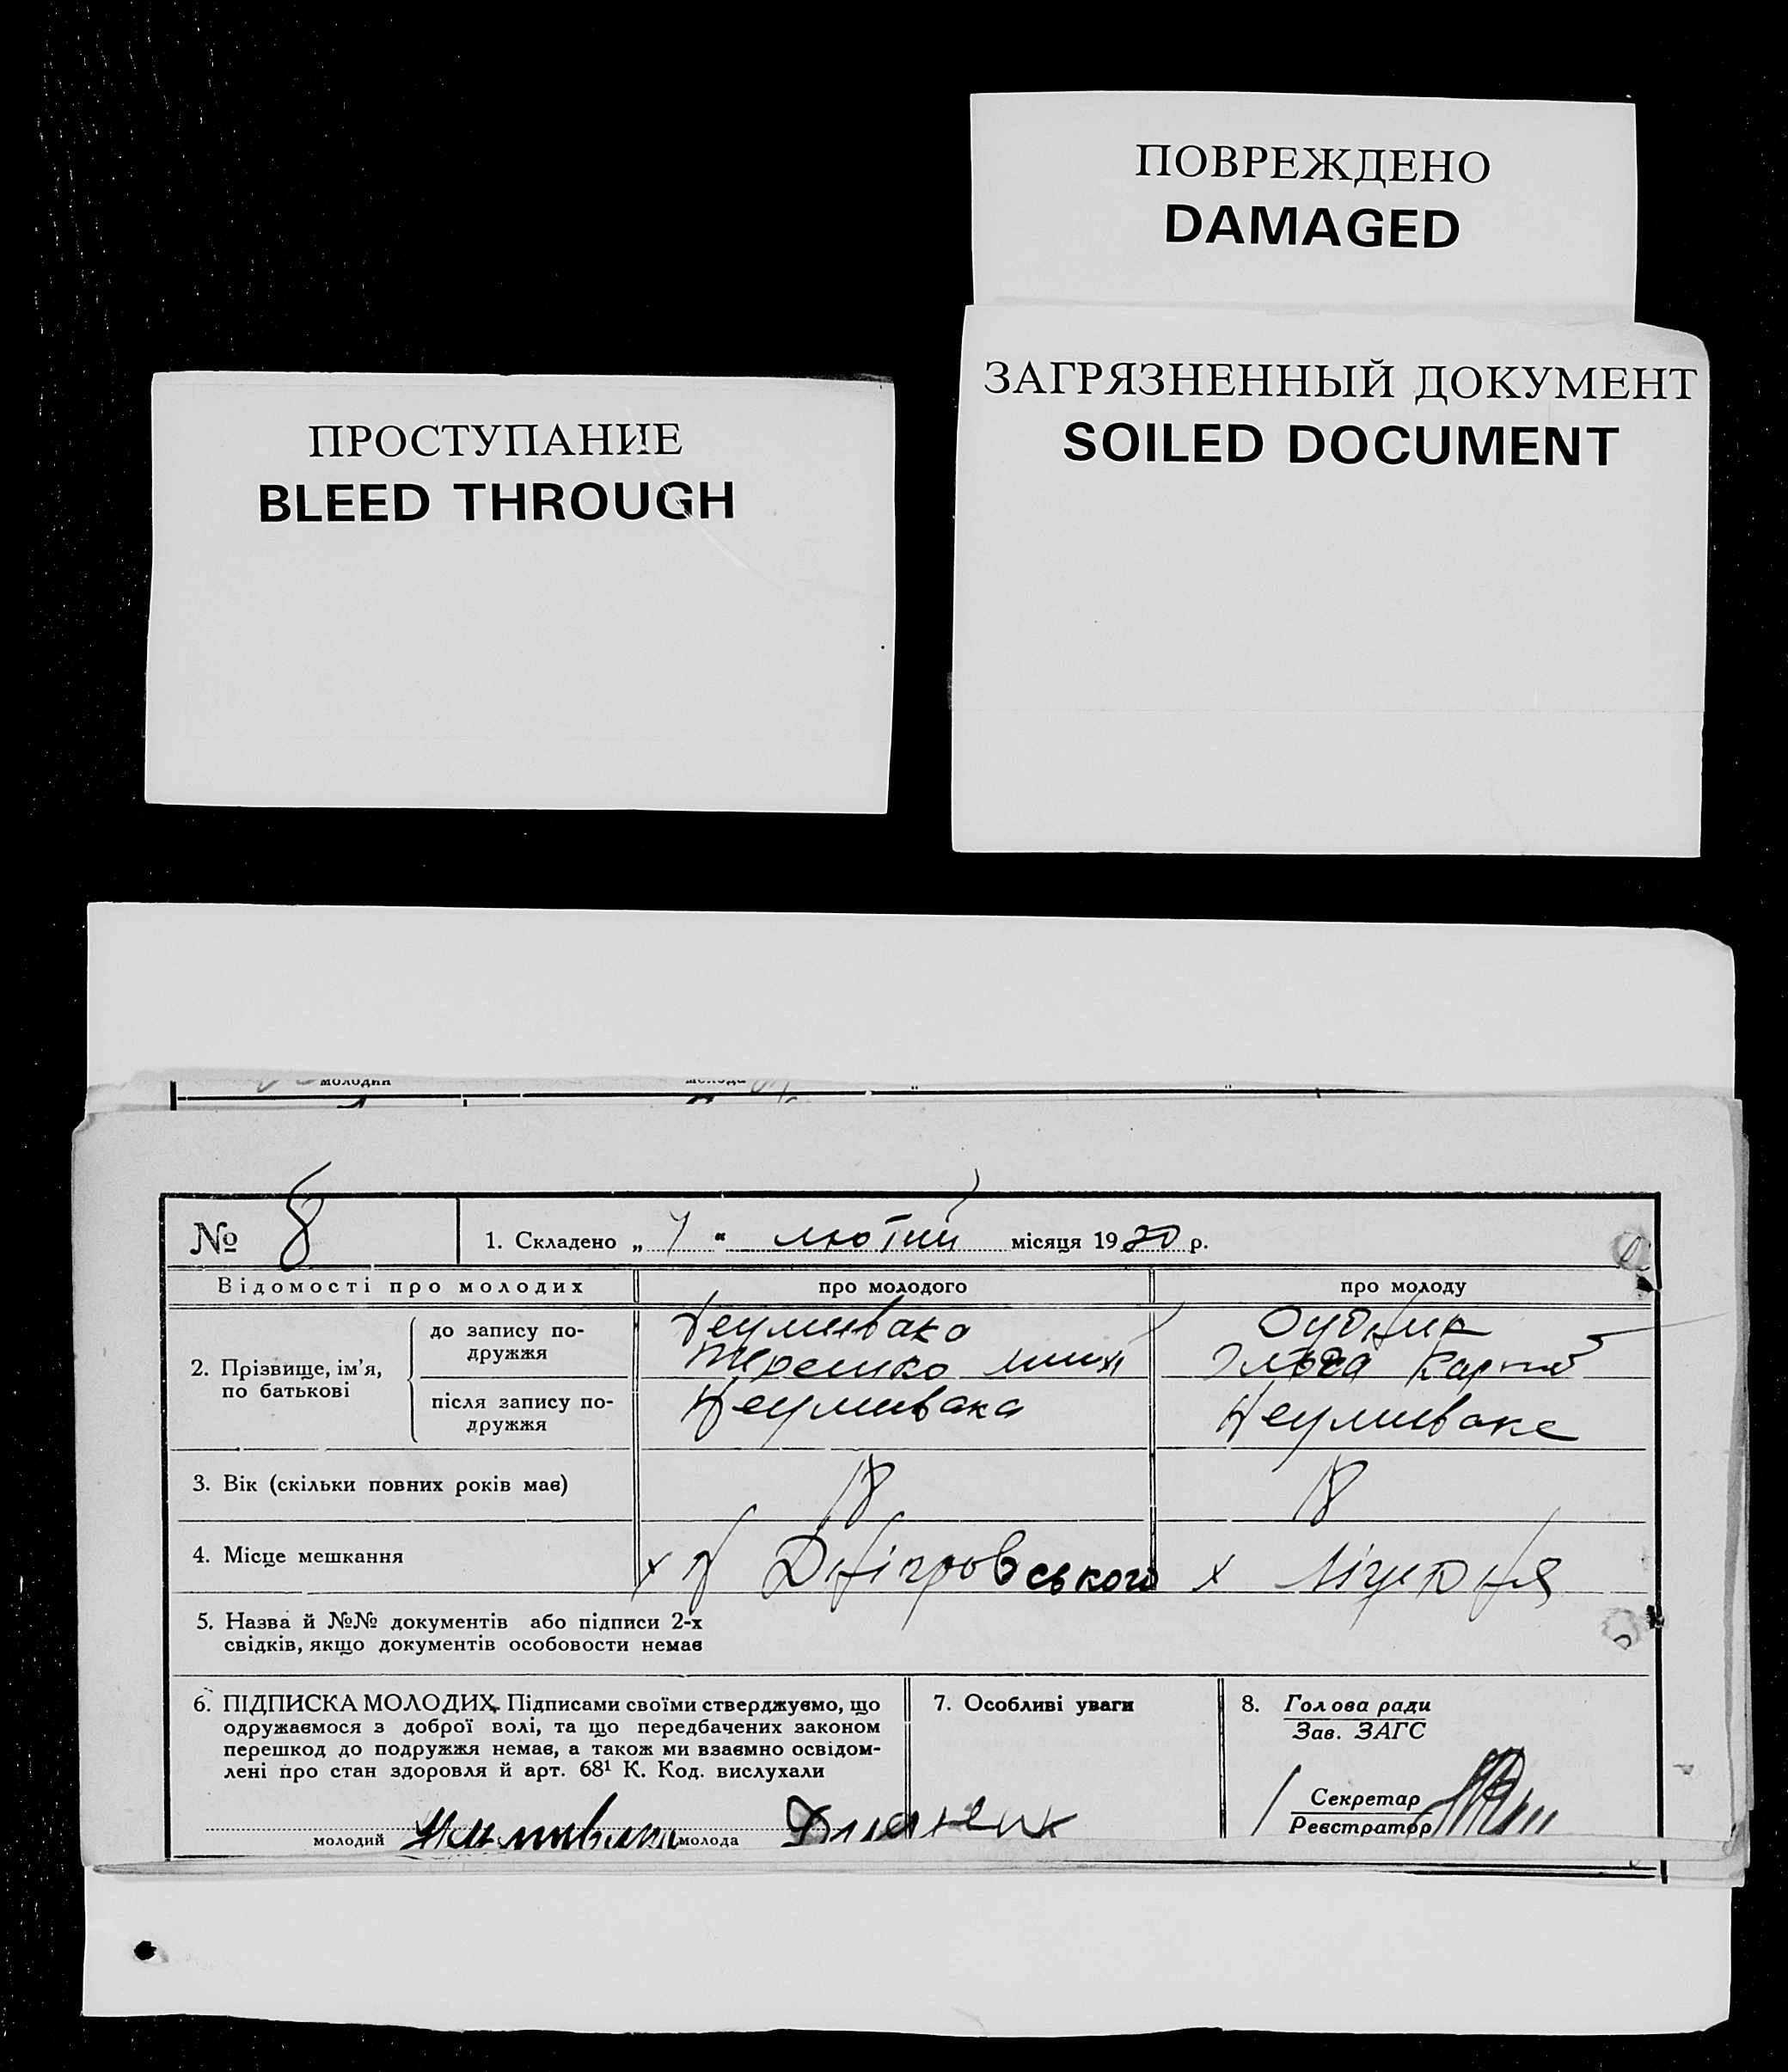 ПОВРЕЖДЕНО
DAMAGED
ЗАГРЯЗНЕННЫЙ ДОКУМЕНТ
SOILED DOCUMENT
ПРОСТУПАНИЕ
BLEED THROUGH
молодий молода
№ 8 1. Складено „ 7 “ лютий місяця 1930 р.
Відомості про молодих про молодого про молоду
2. Прізвище, ім’я, по батькові
до запису подружжя Неумивака
після запису подружжя Неумивака Неумивака
3. Вік (скільки повних років має) 18 18
4. Місце мешкання х х
5. Назва й №№ документів або підписи 2-х
свідків, якщо документів особовости немає
6. ПІДПИСКА МОЛОДИХ. Підписами своїми стверджуємо, що
одружаємося з доброї волі, та що передбачених законом
перешкод до подружжя немає, а також ми взаємно освідом-
лені про стан здоровля й арт. 68¹ К. Код. вислухали
молодий Неумивака молода
7. Особливі уваги
8. Голова ради
Зав. ЗАГС
Секретар
Реєстратор